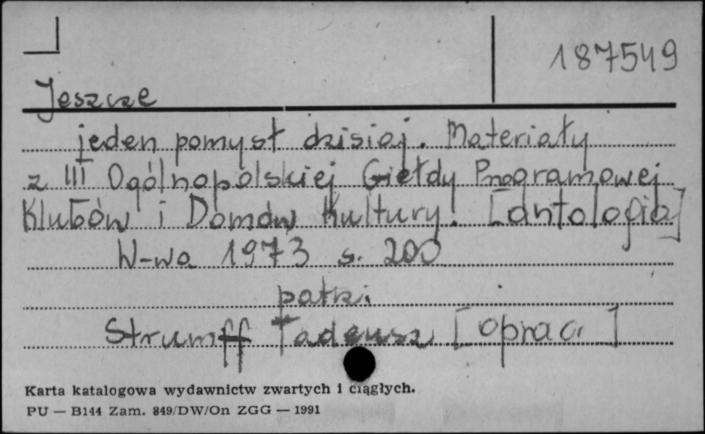 187549
Jeszcze
jeden pomysł dzisiaj. Materiały
z III Ogólnopolskiej Giełdy Programowej
Klubów i Domów Kultury. [antologia]
W-wa 1973 s. 200
patrz.
Strumff Tadeusz [oprac.]
Karta katalogowa wydawnictw zwartych i ciągłych.
PU — B144 Zam. 849/DW/On ZGG — 1991